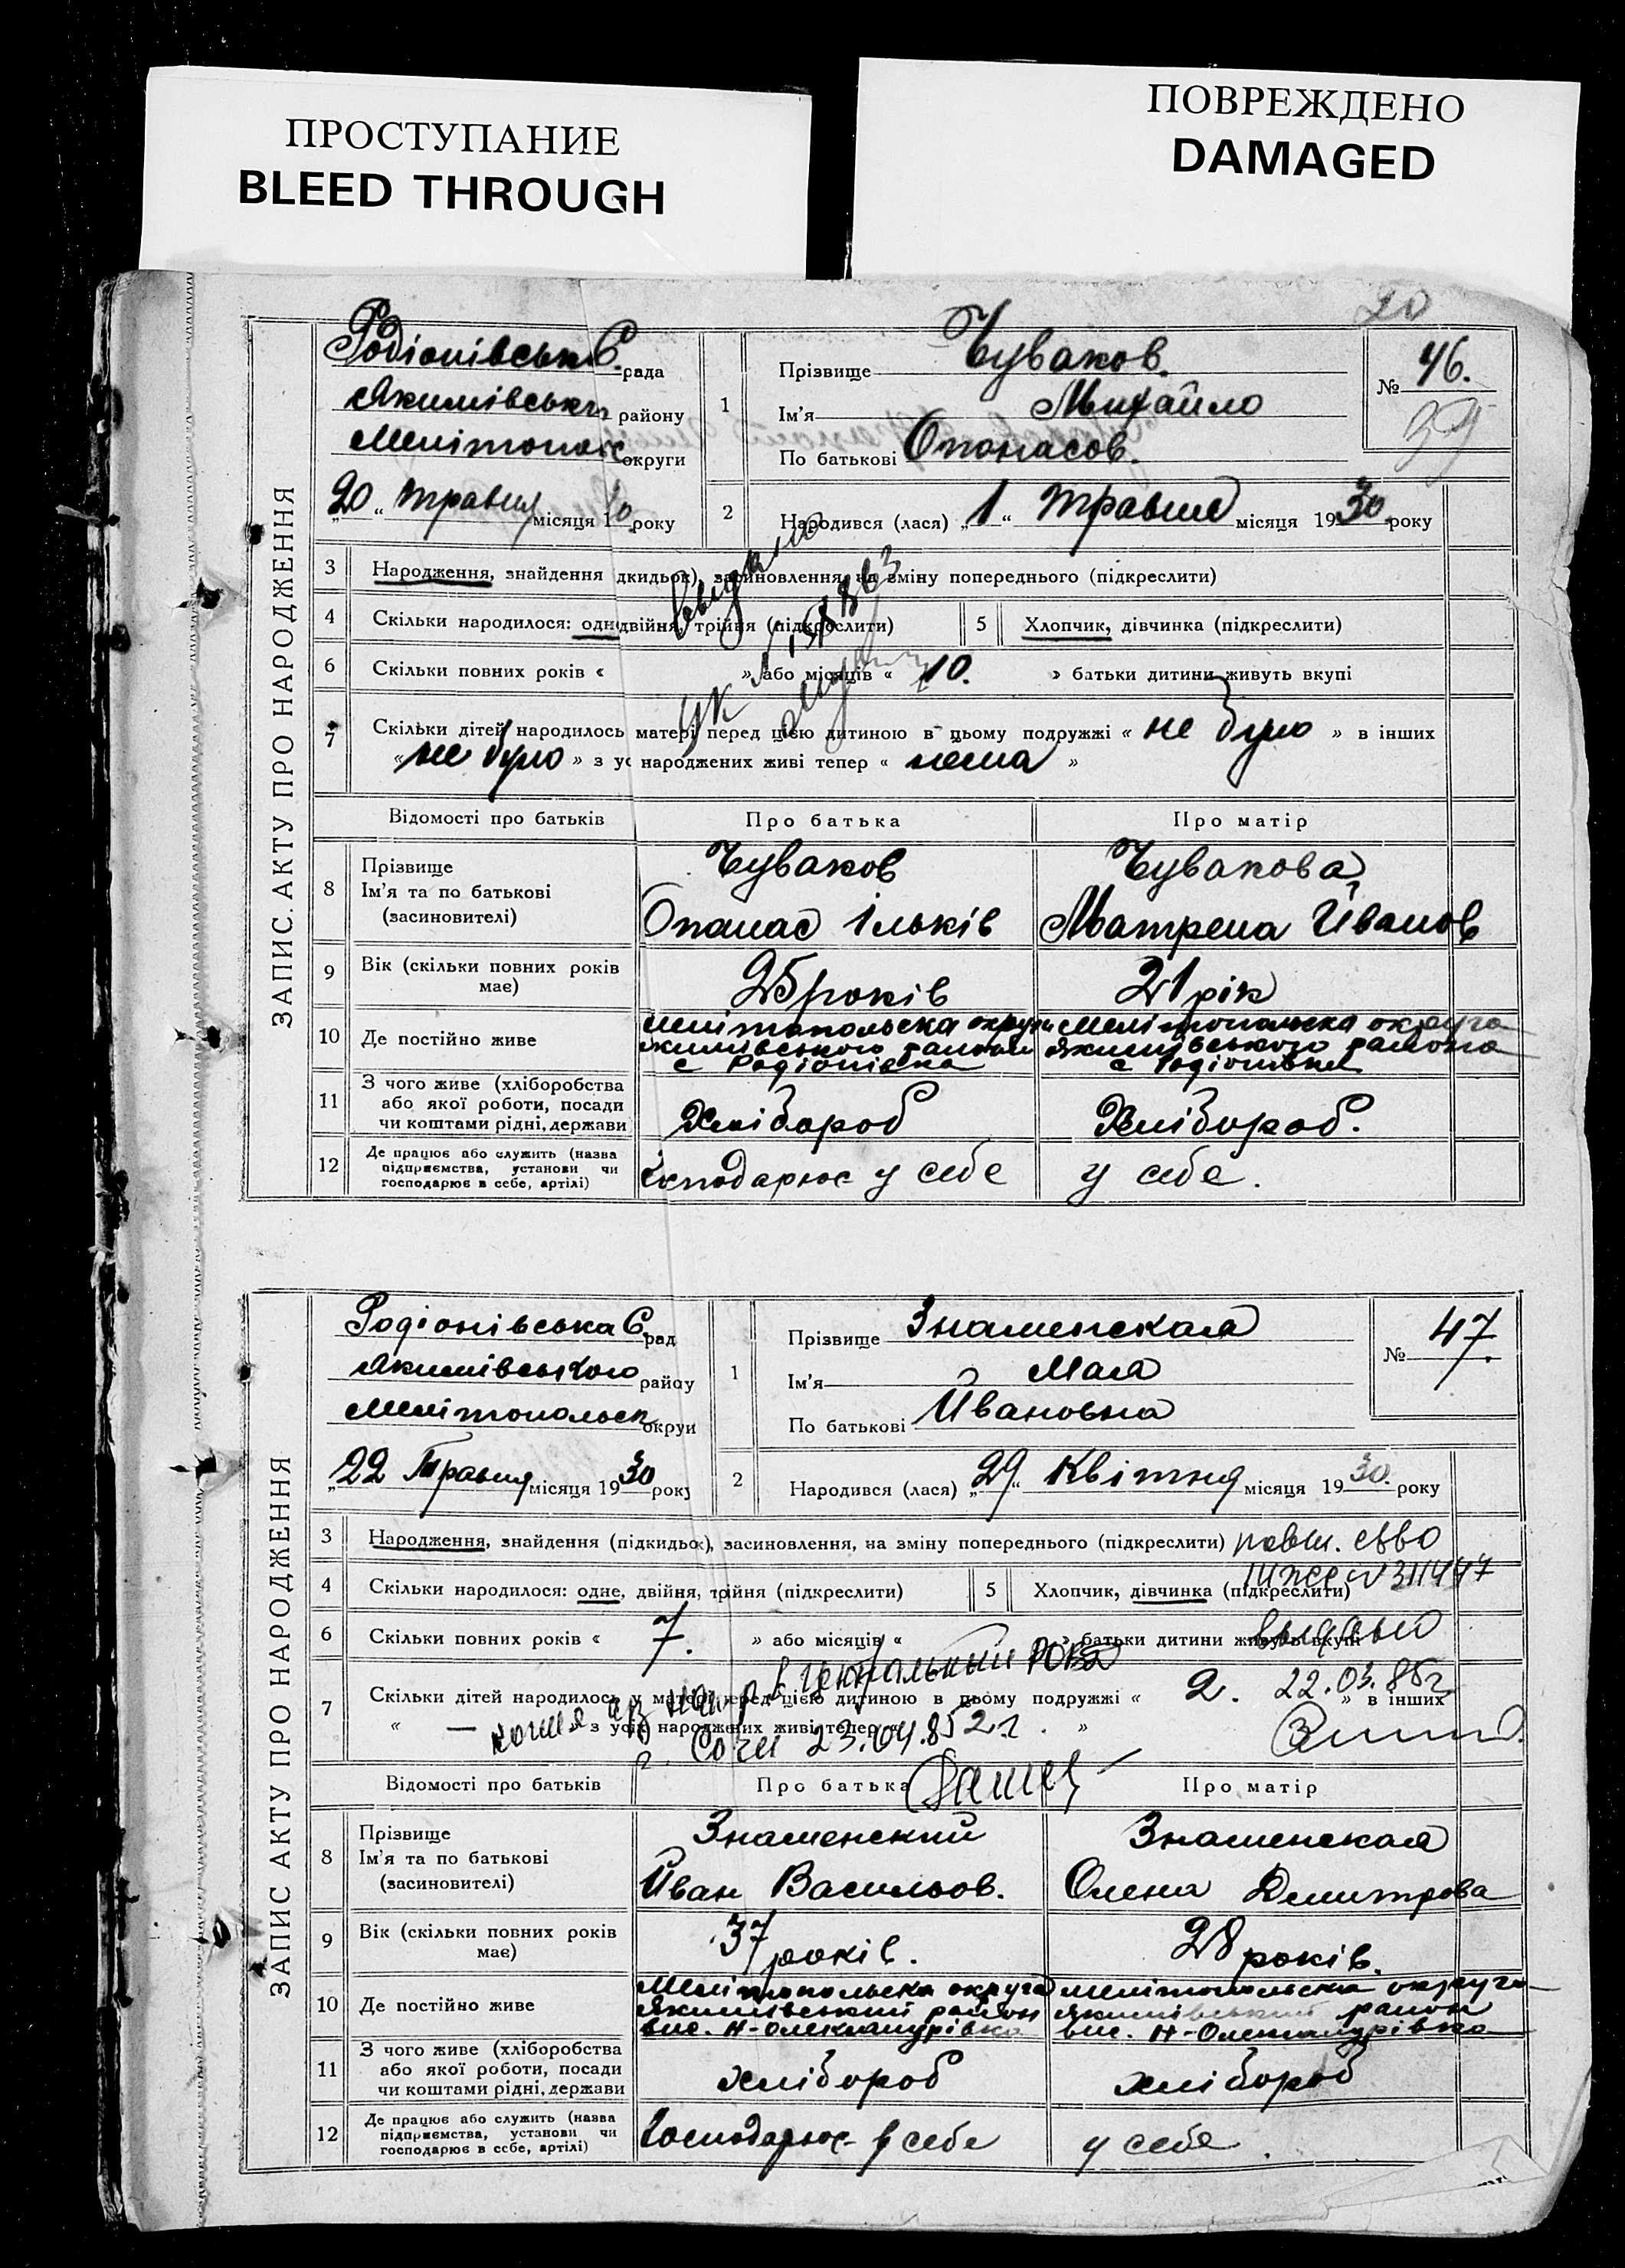 ПРОСТУПАНИЕ
BLEED THROUGH
ПОВРЕЖДЕНО
DAMAGED
20
ЗАПИС. АКТУ ПРО НАРОДЖЕННЯ
Родіонівськ С. рада
Якимівськ району
Мелітопольс округи
„20“ травня місяця 30 року
1 Прізвище Чуваков.
Ім’я Михайло
По батькові Опанасов.
№ 46.
39
2 Народився (лася) „1“ травня місяця 1930 року
3 Народження, знайдення дкидьок), засиновлення, на зміну попереднього (підкреслити)
4 Скільки народилося: одн двійня, трійня (підкреслити) 5 Хлопчик, дівчинка (підкреслити)
6 Скільки повних років « » або місяців « 10. » батьки дитини живуть вкупі
7 Скільки дітей народилось матері перед цією дитиною в цьому подружжі « не було » в інших
« не було » з ус народжених живі тепер « нема »
Відомості про батьків Про батька Про матір
8 Прізвище Ім’я та по батькові (засиновителі)
Чуваков Чувакова
Опанас Ільків Матрена Іванов
9 Вік (скільки повних років має) 25 років 21 рік
10 Де постійно живе
Мелітопольска округи Мелітопольска округа
Якимівського района Якимівського района
с Родіонівка с Родіонівка
11 З чого живе (хліборобства або якої роботи, посади чи коштами рідні, держави Хлібороб Хлібороб.
12 Де працює або служить (назва підприємства, установи чи господарює в себе, артілі) господарює у себе у себе.
ЗАПИС АКТУ ПРО НАРОДЖЕННЯ
Родіонівська С. рад
Якимівського райоу
Мелітопольск окруи
„22 Травня місяця 1930 року
1 Прізвище Знаменская
Ім’я Мая
По батькові Ивановна
№ 47.
2 Народився (лася) „29“ Квітня місяця 1930. року
3 Народження, знайдення (підкидьок), засиновлення, на зміну попереднього (підкреслити) повт. св-во
4 Скільки народилося: одне, двійня, трійня (підкреслити) 5 Хлопчик, дівчинка (підкреслити) N 311447
6 Скільки повних років « 7. » або місяців « » батьки дитини живуть вкупі выдано
7 Скільки дітей народилось у матері перед цією дитиною в цьому подружжі « 2. » в інших 22.03.85г
« — » з усіх народжених живі тепер « 2 »
копия нап. в центральный
г. Сочи 23.04.85 г.
Відомості про батьків Про батька Про матір
8 Прізвище Ім’я та по батькові (засиновителі)
Знаменский Знаменская
Иван Васильов. Олена Дмитрова
9 Вік (скільки повних років має) 37 років. 28 років.
10 Де постійно живе
Мелітопольска округа Мелітопольска округа
Якимівський район Якимівський район
вис. Н-Олександрівка вис. Н-Олександрівка
11 З чого живе (хліборобства або якої роботи, посади чи коштами рідні, держави хлібороб хлібороб
12 Де працює або служить (назва підприємства, установи чи господарює в себе, артілі) господарює у себе у себе.